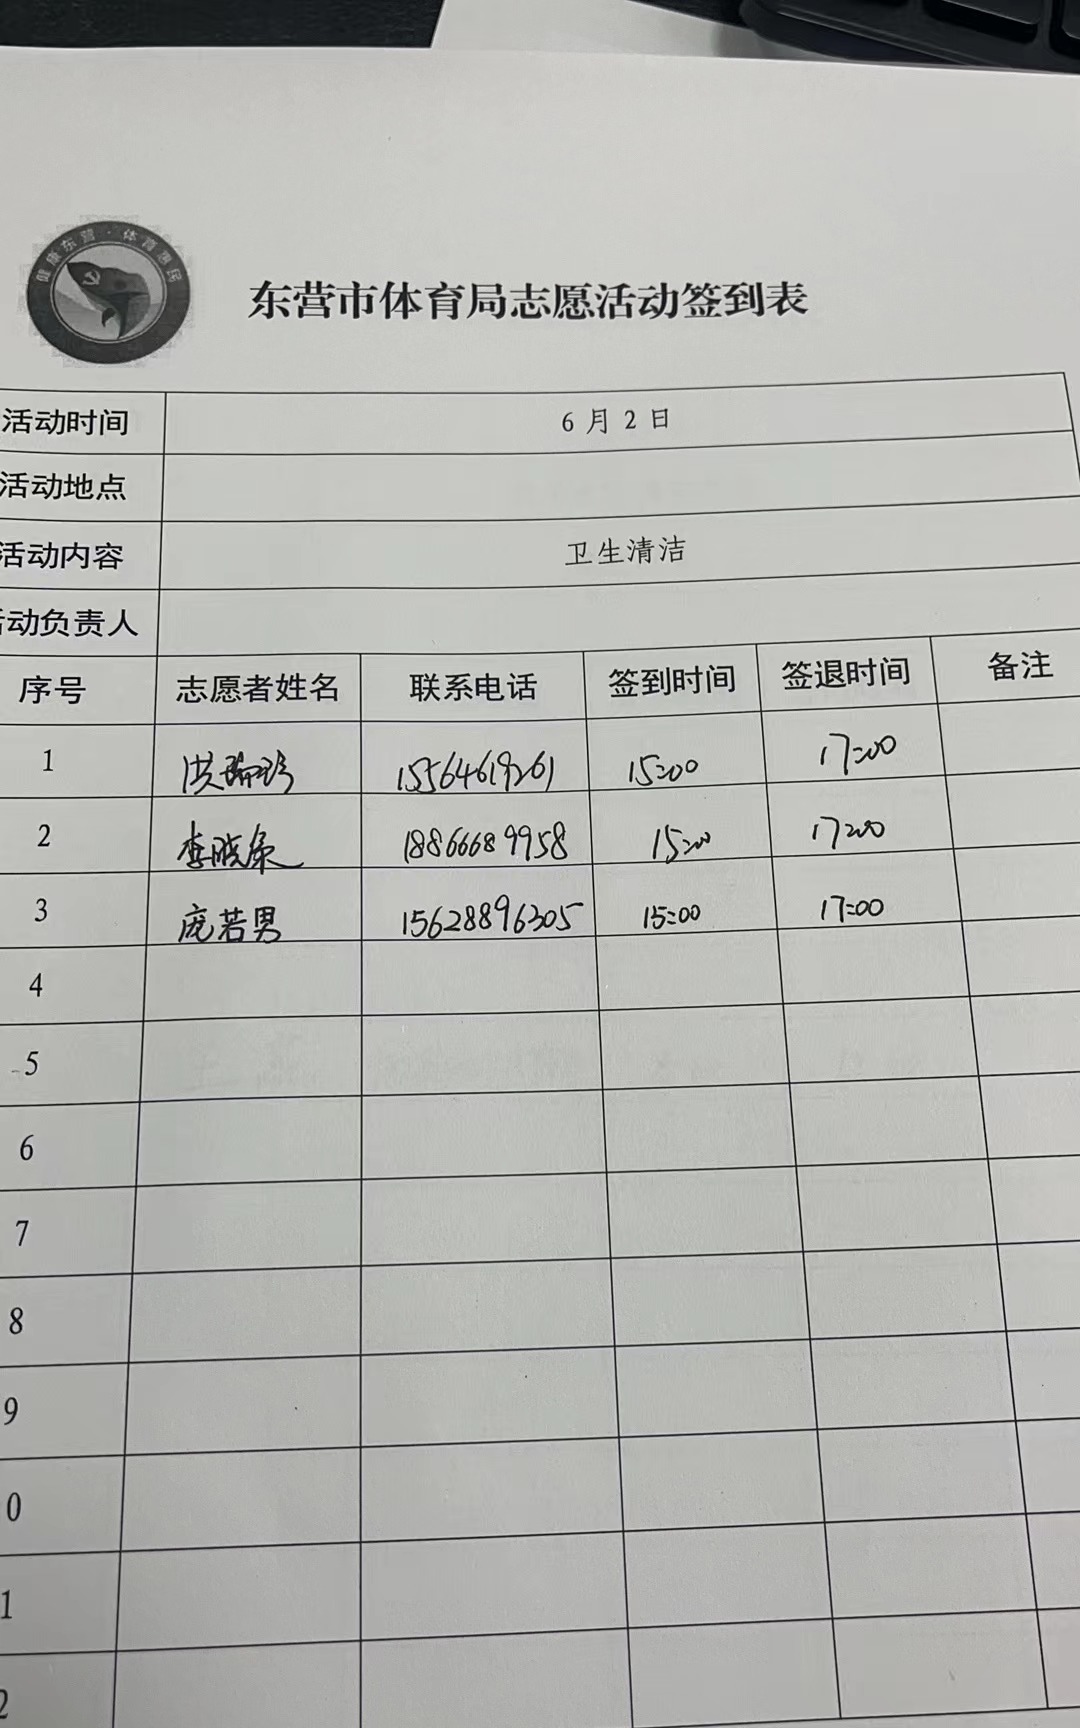 健康东营·体育惠民
东营市体育局志愿活动签到表
活动时间 6月2日
活动地点
活动内容 卫生清洁
活动负责人
序号 志愿者姓名 联系电话 签到时间 签退时间 备注
1 洪瑞珍 15564619261 15:00 17:00
2 李晓康 18866689958 15:00 17:00
3 庞若男 15628896305 15:00 17:00
4
5
6
7
8
9
0
1
2